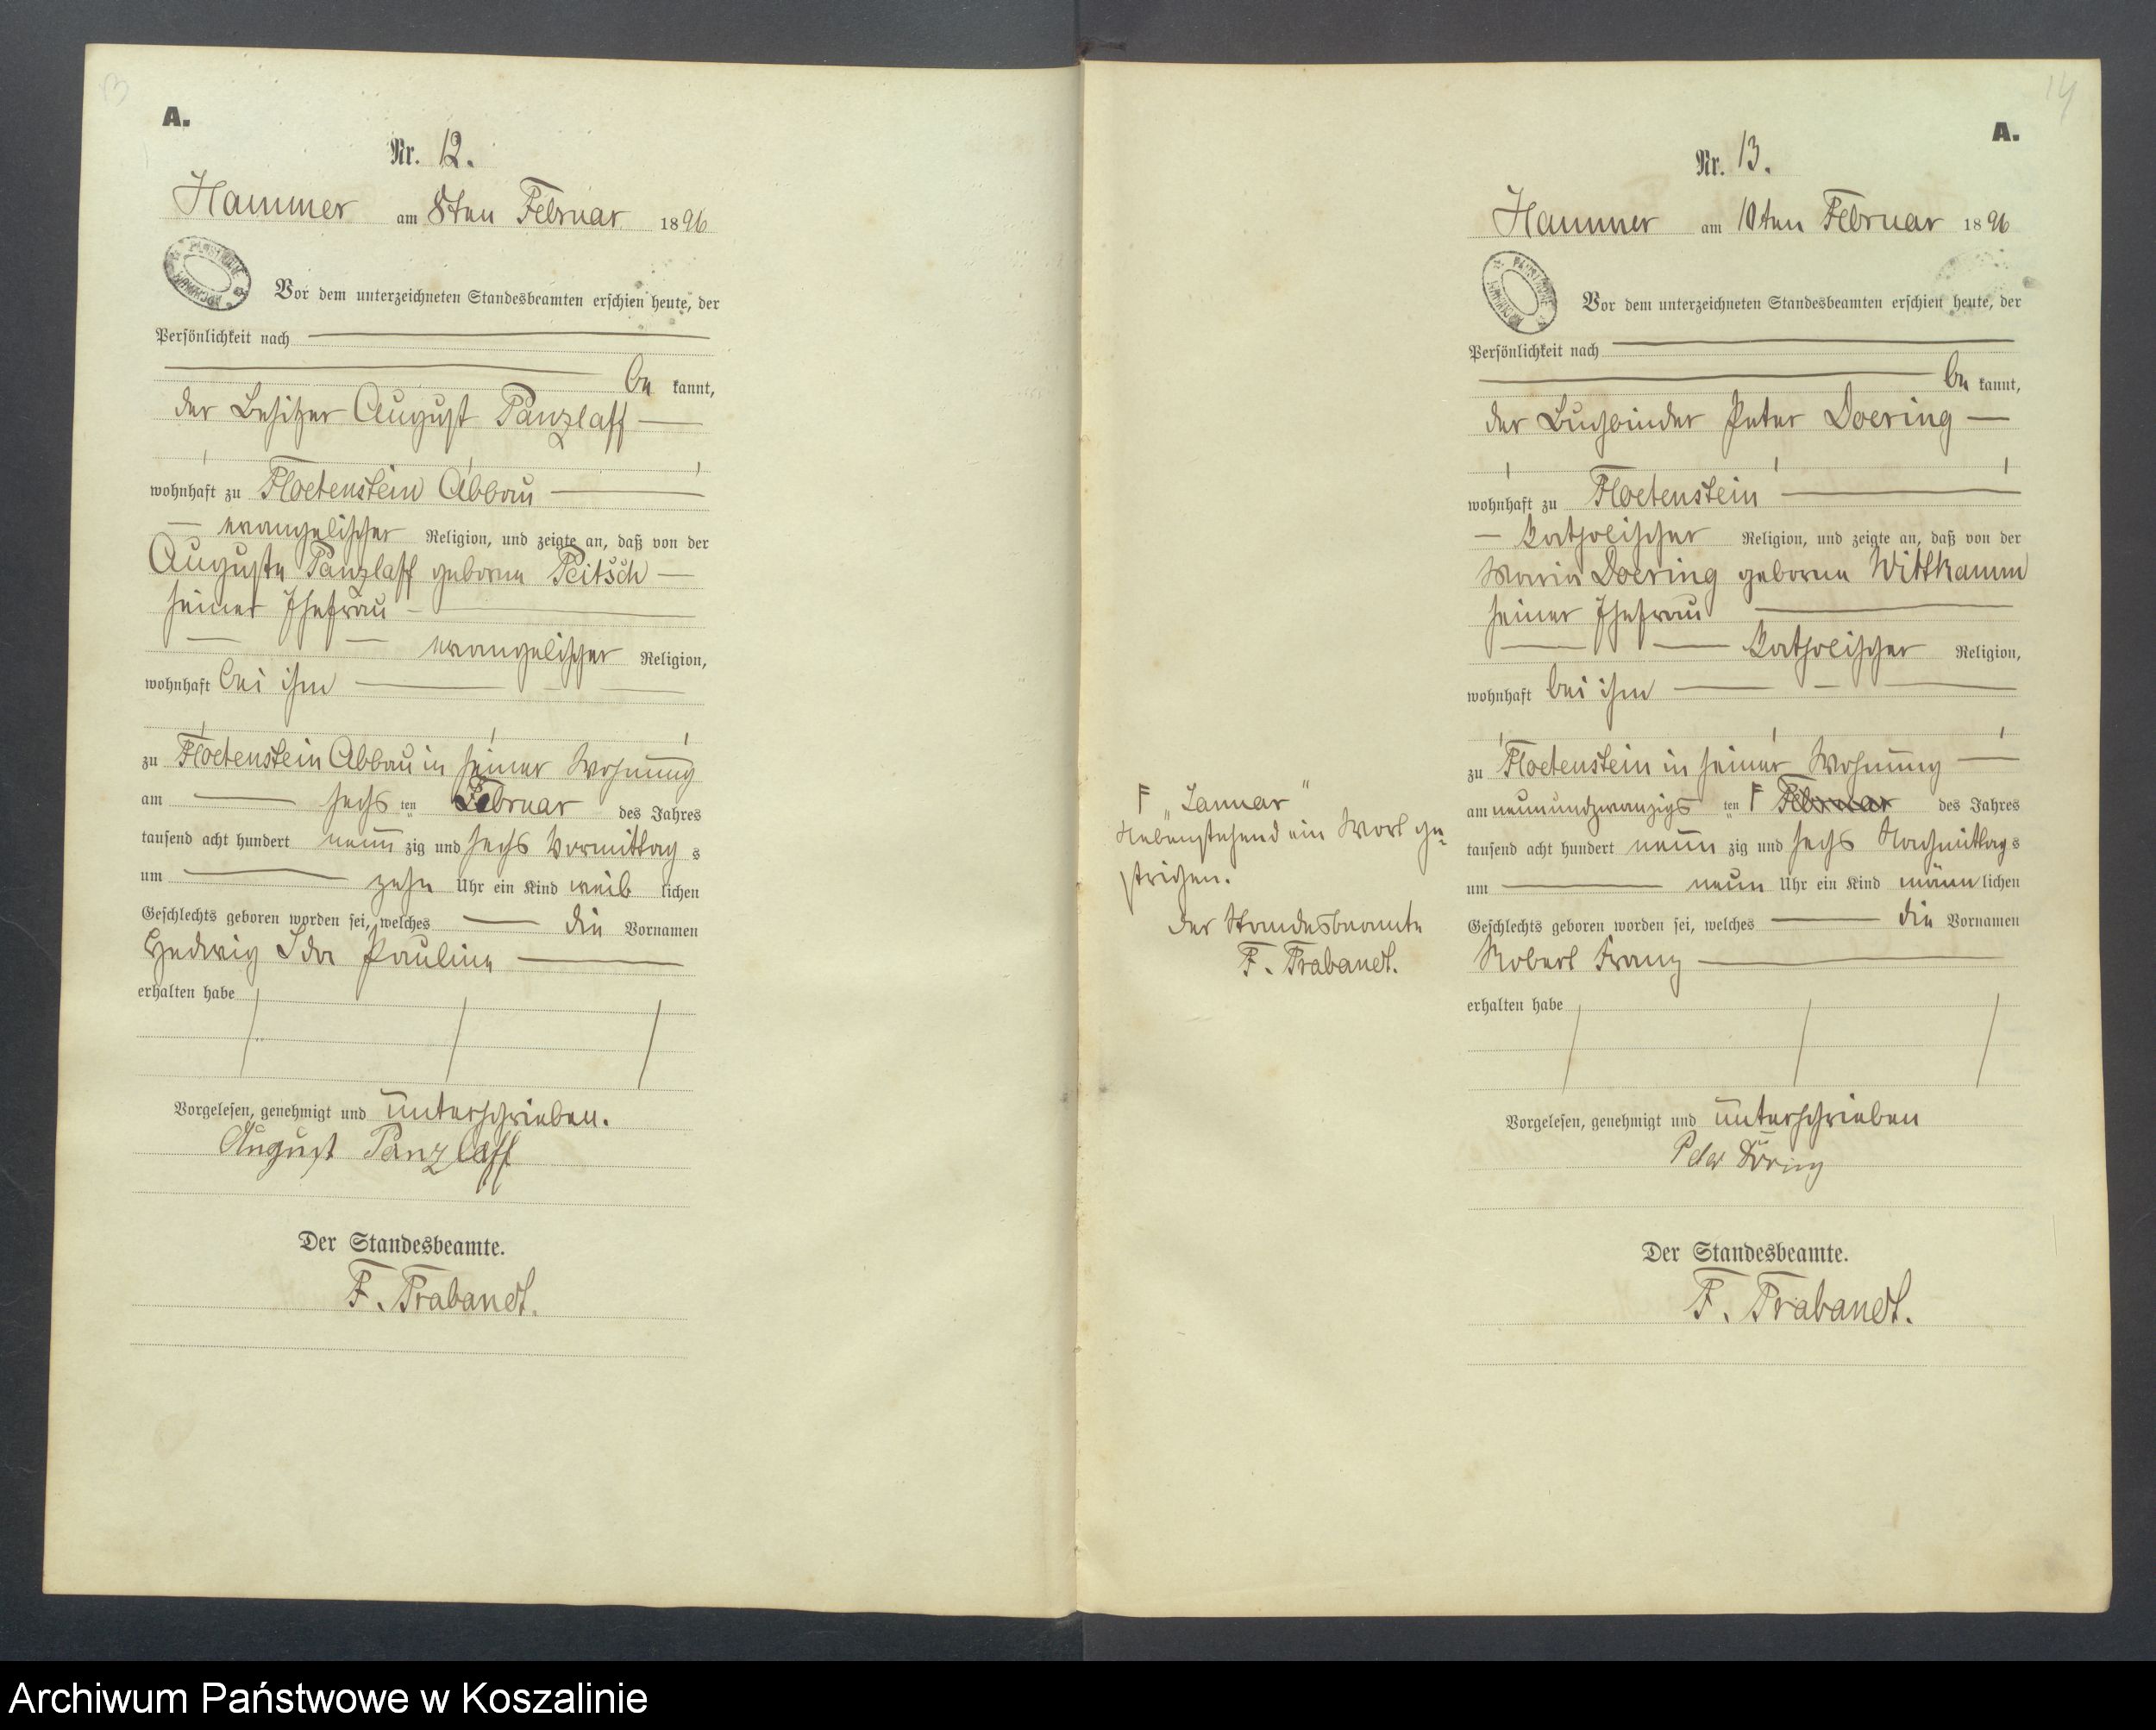 13
A.
Nr. 12.
Hammer am 8ten Februar 1896
Vor dem unterzeichneten Standesbeamten erschien heute, der
Persönlichkeit nach
be kannt,
der Besitzer August Panzlaff
wohnhaft zu Floetenstein Abbau
evangelischer Religion, und zeigte an, daß von der
Auguste Panzlaff geborne Peitsch
seiner Ehefrau
evangelischer Religion,
wohnhaft bei ihm
zu Floetenstein Abbau in seiner Wohnung
am sechs ten Februar des Jahres
tausend acht hundert neun zig und sechs Vormittag s
um zehn Uhr ein Kind weib lichen
Geschlechts geboren worden sei, welches die Vornamen
Hedwig Ida Pauline
erhalten habe
Vorgelesen, genehmigt und unterschrieben.
August Panzlaff
Der Standesbeamte.
F. Trabandt.
14
A.
Nr. 13.
Hammer am 10ten Februar 1896
Vor dem unterzeichneten Standesbeamten erschien heute, der
Persönlichkeit nach
be kannt,
der Buchbinder Peter Doering
wohnhaft zu Floetenstein
katholischer Religion, und zeigte an, daß von der
Maria Doering geborne Wittkamm
seiner Ehefrau
katholischer Religion,
wohnhaft bei ihm
zu Floetenstein in seiner Wohnung
am neunundzwanzigs ten F Februar des Jahres
tausend acht hundert neun zig und sechs Nachmittag s
um neun Uhr ein Kind männ lichen
Geschlechts geboren worden sei, welches die Vornamen
Robert Franz
erhalten habe
F "Januar"
Nebenstehend ein Wort ge-
strichen.
Der Standesbeamte
F. Trabandt.
Vorgelesen, genehmigt und unterschrieben
Peter Döring
Der Standesbeamte.
F. Trabandt.
Archiwum Państwowe w Koszalinie